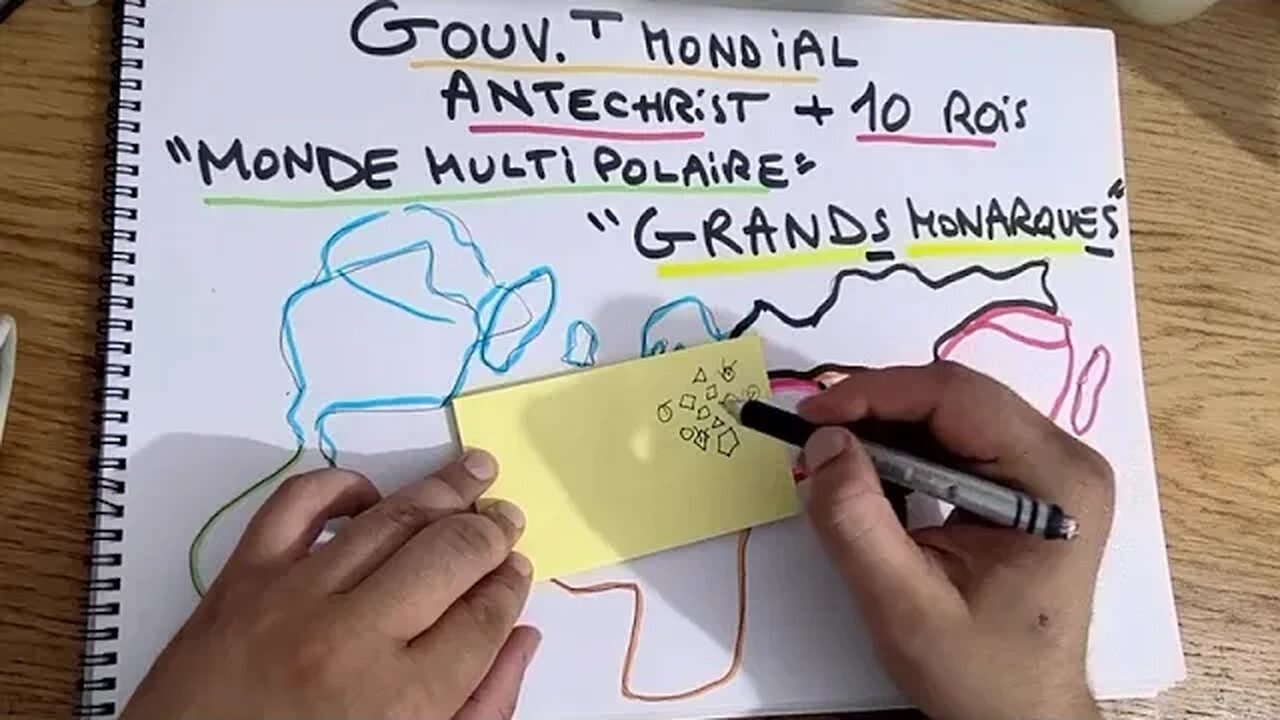 GOUV.T MONDiAL
ANTECHRiST + 10 ROiS
"MONDE MULTiPOLAiRE"
"GRANDS MONARQUES"